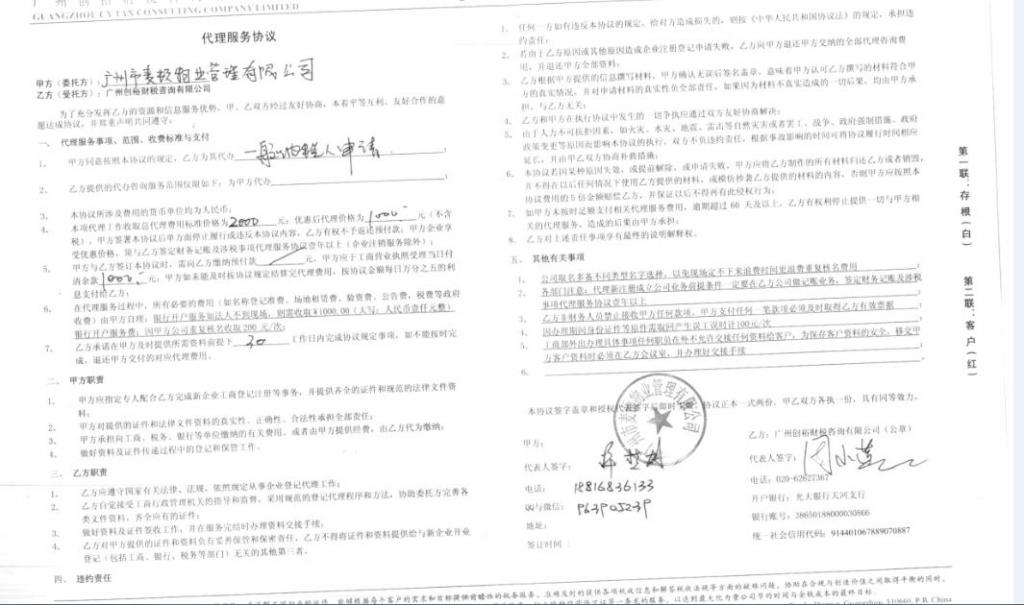 GUANGZHOU CY TAX CONSULTING COMPANY LIMITED
代理服务协议
甲方（委托方）：广州市麦极物业管理有限公司
乙方（受托方）：广州创裕财税咨询有限公司
为了充分发挥乙方的资源和信息服务优势，甲、乙双方经过友好协商，本着平等互利、友好合作的意
愿达成协议，并郑重声明共同遵守：
一、 代理服务事项、范围、收费标准与支付
1. 甲方同意按照本协议的规定，乙方为其代办 一般纳税人申请
2. 乙方提供的代办咨询服务范围仅限如下：为甲方代办
3. 本协议所涉及费用的货币单位均为人民币；
4. 本项代理工作收取总代理费用标准价格为2000元；优惠后代理价格为1000元（不含
税），甲方签署本协议后单方面停止履行或违反本协议内容，乙方有权不予返还预付款；甲方企业享
受优惠价格，须与乙方签定财务记账及涉税事项代理服务协议壹年以上（企业注销服务除外）；
5. 甲方与乙方签订本协议时，需向乙方缴纳预付款 元，甲方应于工商营业执照受理当日付
清余款1000元；甲方如未能及时按协议规定结算完代理费用，按协议金额每日万分之五的利
息支付给乙方；
6. 在代理服务过程中，所有必要的费用（如名称登记费、场地租赁费、验资费、公告费、税费等政府
收费）由甲方自理；银行开户服务如法人不到现场，则需收取¥1000.00（大写：人民币壹仟元整）
银行开户服务费；因甲方公司重复核名收取 200 元/次；
7. 乙方承诺在甲方及时提供所需资料前提下 30 工作日内完成协议规定事项，如不能按时完
成，退还甲方交付的对应代理费用。
二、 甲方职责
1. 甲方应指定专人配合乙方完成新企业工商登记注册等事务，并提供齐全的证件和规范的法律文件资
料。
2. 甲方对提供的证件和法律文件资料的真实性、正确性、合法性承担全部责任；
3. 甲方承担向工商、税务、银行等单位缴纳的有关费用，或者由甲方提供经费，由乙方代为缴纳；
4. 做好资料及证件传递过程中的登记和保管工作。
三、 乙方职责
1. 乙方应遵守国家有关法律、法规，依照规定从事企业登记代理工作；
2. 乙方自觉接受工商行政管理机关的指导和监督，采用规范的登记代理程序和方法，协助委托方完善各
类文件资料，齐全应有的证件；
3. 做好资料及证件签收工作，并在服务完结时办理资料交接手续；
4. 乙方对甲方提供的证件和资料负有妥善保管和保密责任，乙方不得将证件和资料提供给与新企业开业
登记（包括工商、银行、税务等部门）无关的其他第三者。
四、 违约责任
1. 任何一方如有违反本协议的规定，给对方造成损失的，则按《中华人民共和国协议法》的规定，承担违
约责任；
2. 若由于乙方原因或其他原因造成企业注册登记申请失败，乙方向甲方退还甲方交纳的全部代理咨询费
用，并退还甲方全部资料；
3. 乙方根据甲方提供的信息撰写材料，甲方确认无误后签名盖章，意味着甲方认可乙方撰写的材料符合甲
方的真实情况，并对申请材料的真实性负全部责任，如果因为材料不真实造成的一切后果，均由甲方承
担，与乙方无关；
4. 乙方和甲方在执行协议中发生的一切争执应通过双方友好协商解决；
5. 由于人力不可抗拒因素，如火灾、水灾、地震、雷击等自然灾害或者罢工、战争、政府强制措施、政府
政策变更等原因而影响本协议的执行，双方不负违约责任。根据事故影响的时间可将协议履行时间相应
延长，并由甲乙双方协商补救措施；
6. 本协议若因某种原因失效，或提前解除，或申请失败，甲方应将乙方制作的所有材料归还乙方或者销毁，
并不得在以后任何情况下使用乙方提供的材料，或模仿抄袭乙方提供的材料的内容，否则甲方应按照本
协议费用的 5 倍金额赔偿乙方，并保证以后不得再有此侵权行为；
7. 如甲方未按时足额支付相关代理服务费用，逾期超过 60 天及以上，乙方有权利停止提供一切与甲方相
关的代理服务，造成的后果由甲方承担；
8. 乙方对上述责任事项享有最终的说明解释权。
五、 其他有关事项
1. 公司取名多备不同类型名字选择，以免现场定不下来浪费时间更浪费重复核名费用
2. 各部门注意：代理新注册成立公司业务前提条件一定要在乙方公司做记账业务，签定财务记账及涉税
事项代理服务协议壹年以上
3. 乙方非财务人员禁止接收甲方任何款项，甲方支付任何一笔款项必须及时取得乙方有效票据
4. 因办理期间身份证件等原件需取回产生误工误时计100元/次
5. 工商部外出办理具体事项任何职员在外不允许交接任何资料给客户，为保存客户资料的安全，移交甲
方客户资料时必须在乙方会议室，并办理好交接手续
6.
本协议签字盖章和授权代表签字后即时生效；协议正本一式两份，甲乙双方各执一份，具有同等效力。
甲方：
代表人签字：
电话： 18816836133
QQ与微信： 963905239
地址：
签订时间：
乙方：广州创裕财税咨询有限公司（公章）
代表人签字：周小莲
电话：020-62627367
开户银行：光大银行天河支行
银行账号：38650188000030866
统一社会信用代码：914401067889070887
第一联：存根（白）
第二联：客户（红）